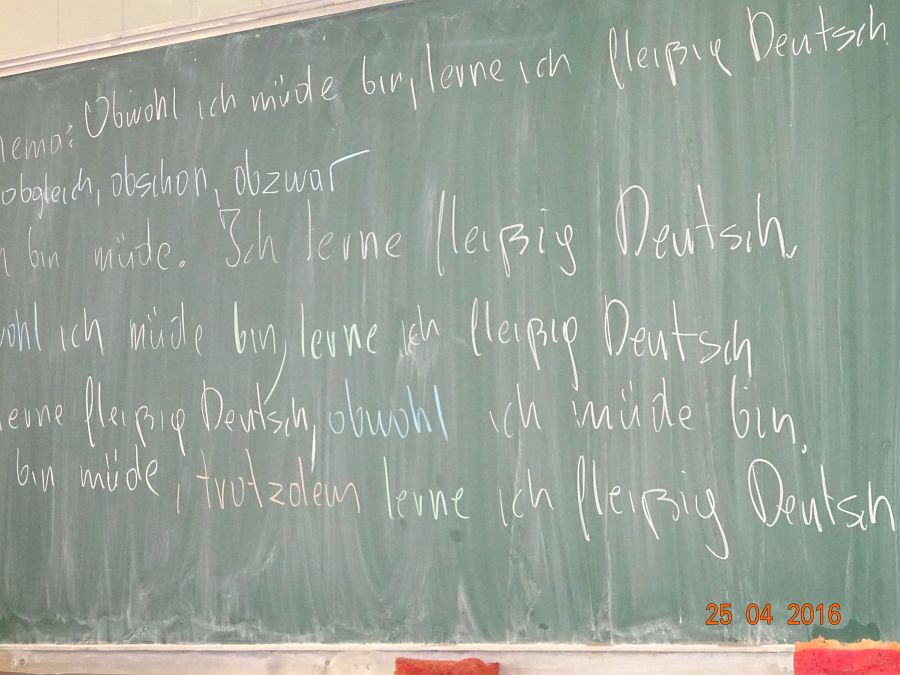 hema: Obwohl ich müde bin, lerne ich fleißig Deutsch
obgleich, obschon, obzwar
h bin müde. Ich lerne fleißig Deutsch.
wohl ich müde bin, lerne ich fleißig Deutsch
lerne fleißig Deutsch, obwohl ich müde bin.
bin müde, trotzdem lerne ich fleißig Deutsch
25 04 2016